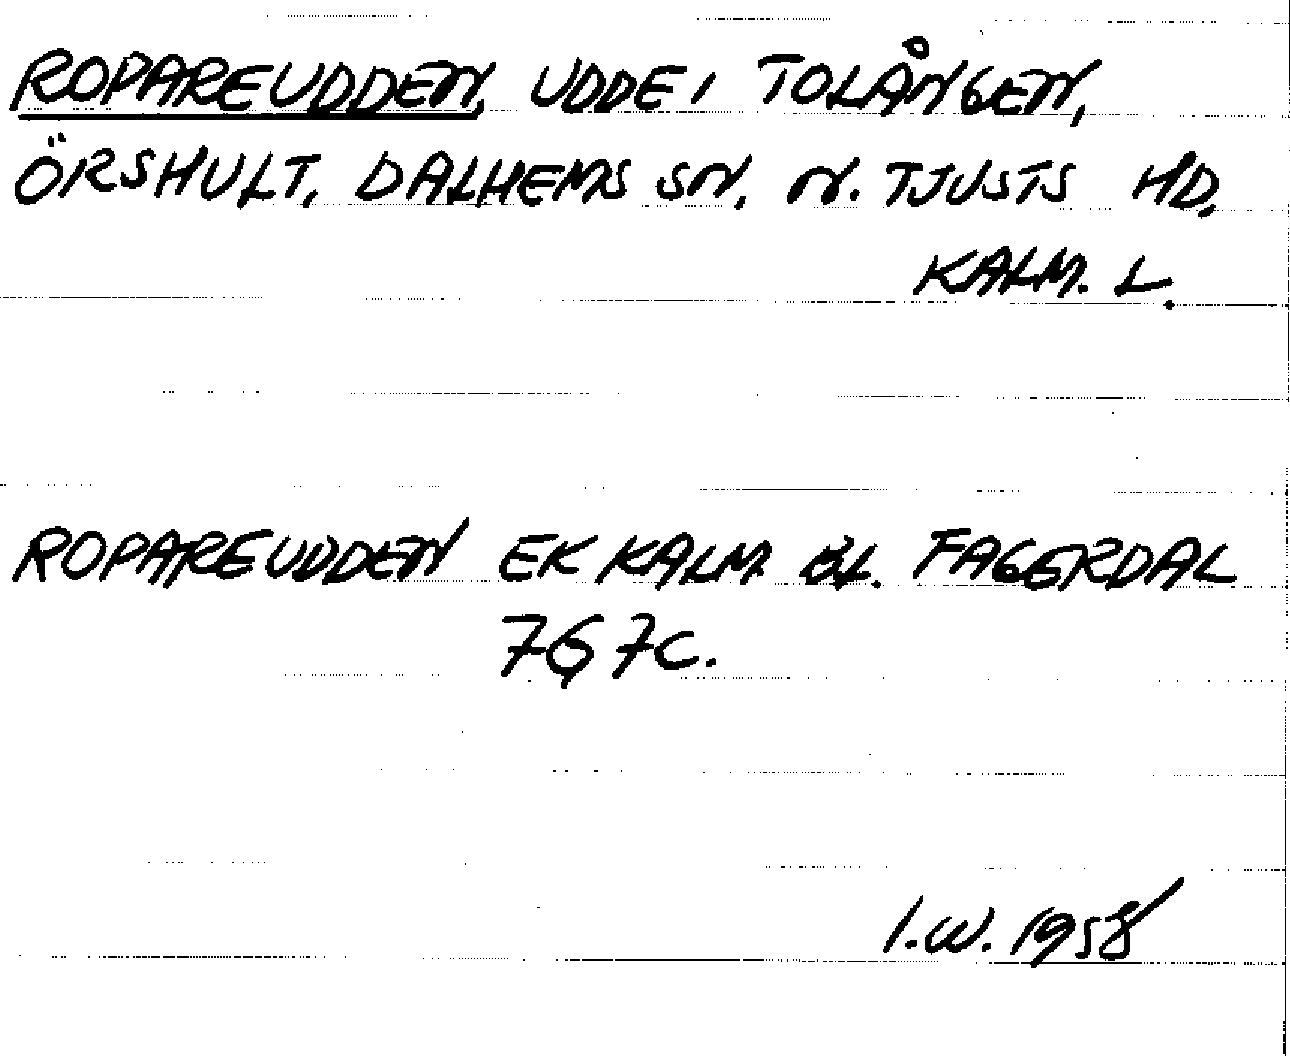 ROPAREUDDEN, UDDE I TOLÅNGEN,
ÖRSHULT, DALHEMS SN, N. TJUSTS HD,
KALM. L.
ROPAREUDDEN EK KALM BL. FAGERDAL
767C.
I.W. 1958